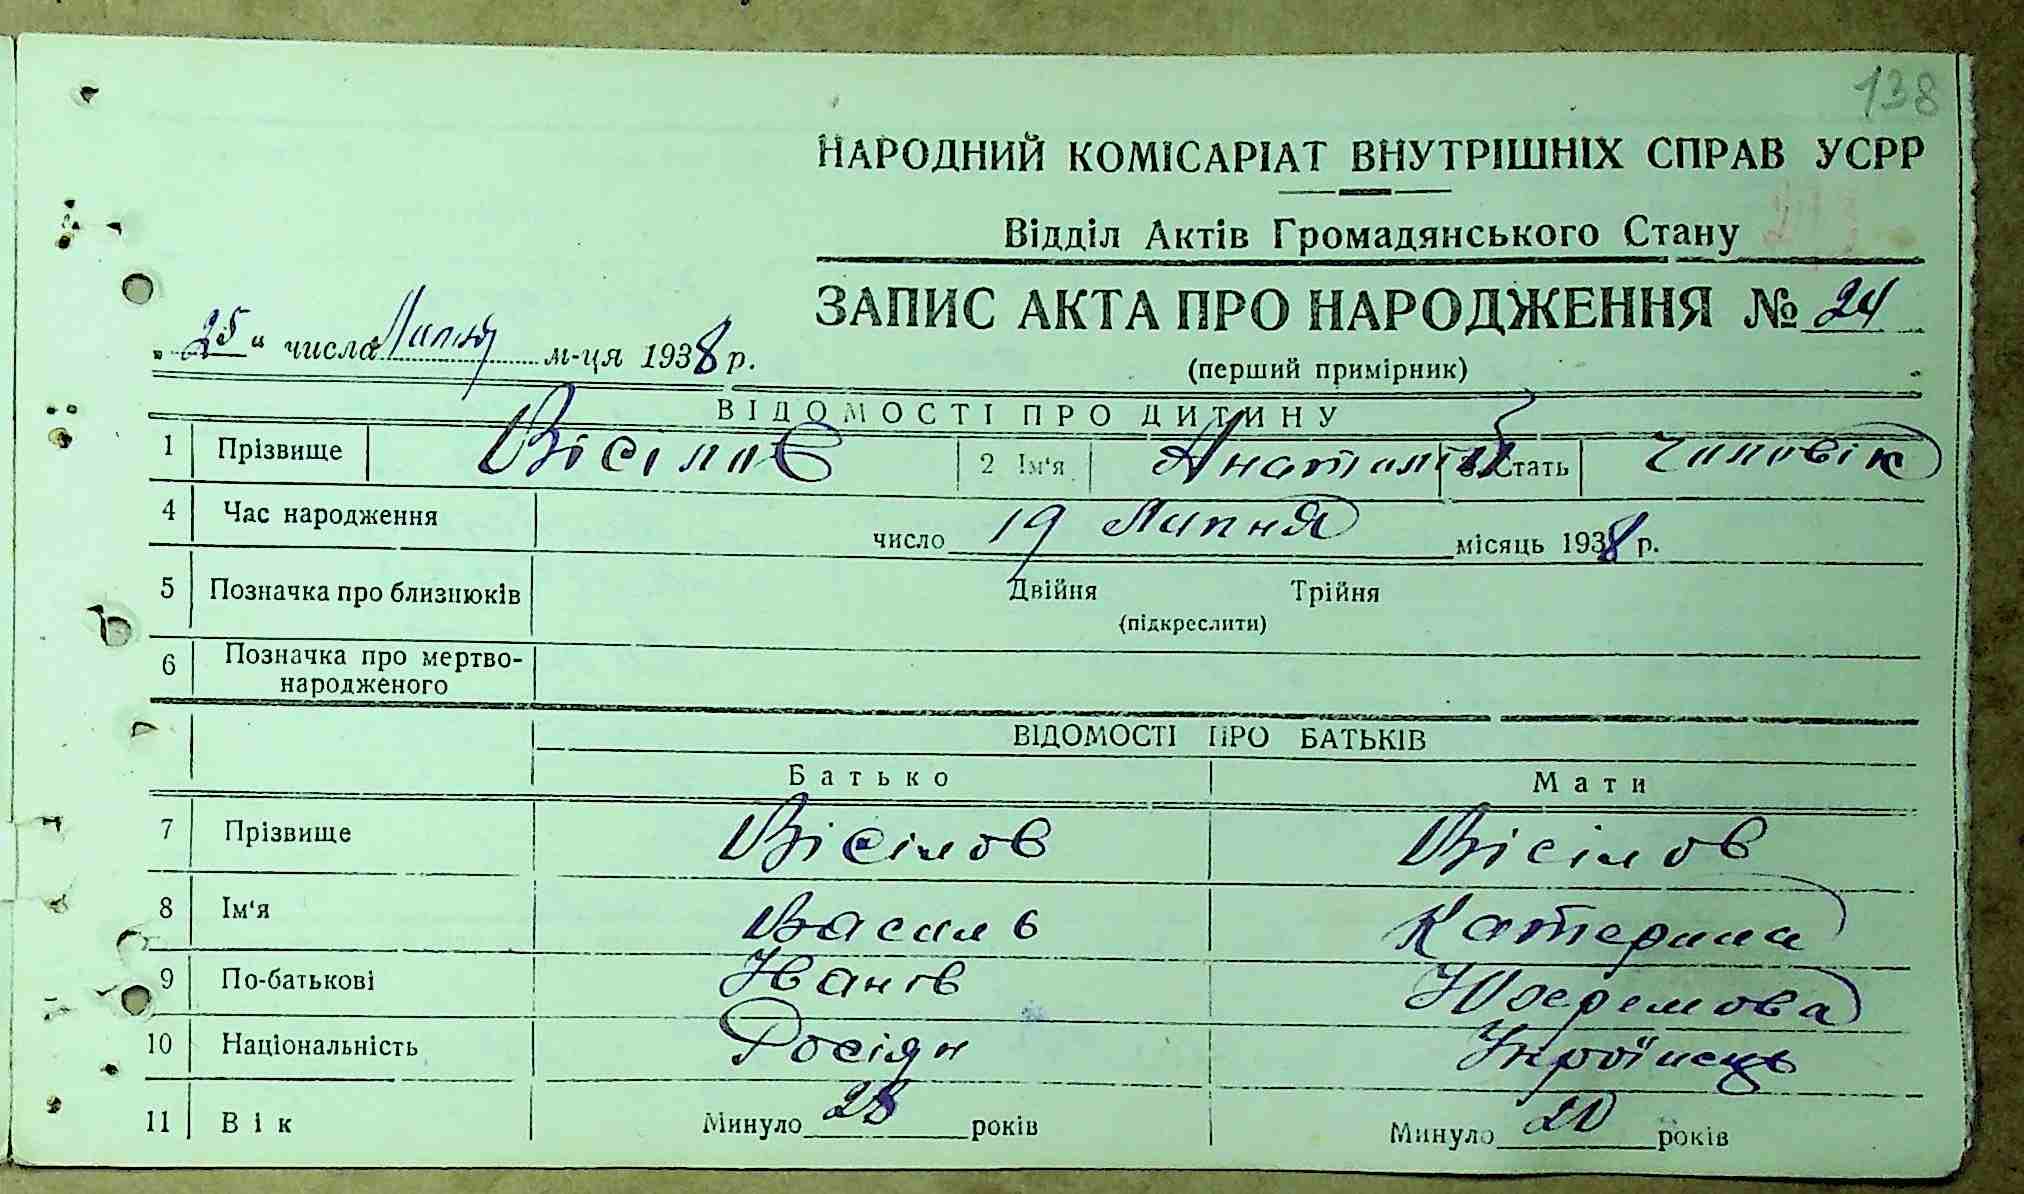 138
НАРОДНИЙ КОМІСАРІАТ ВНУТРІШНІХ СПРАВ УСРР
Відділ Актів Громадянського Стану
ЗАПИС АКТА ПРО НАРОДЖЕННЯ № 24
„ 25 " числа Липня м-ця 1938 р.
(перший примірник)
ВІДОМОСТІ ПРО ДИТИНУ
1 Прізвище Вісілов 2 Ім'я Анатолій 3 Стать Чиловік
4 Час народження число 19 Липня місяць 1938 р.
5 Позначка про близнюків Двійня Трійня
(підкреслити)
6 Позначка про мертво-
народженого
ВІДОМОСТІ ПРО БАТЬКІВ
Батько Мати
7 Прізвище Вісілов Вісілов
8 Ім'я Василь Катерина
9 По-батькові Іванів
10 Національність Росіян Україиець
11 Вік Минуло 28 років Минуло 20 років